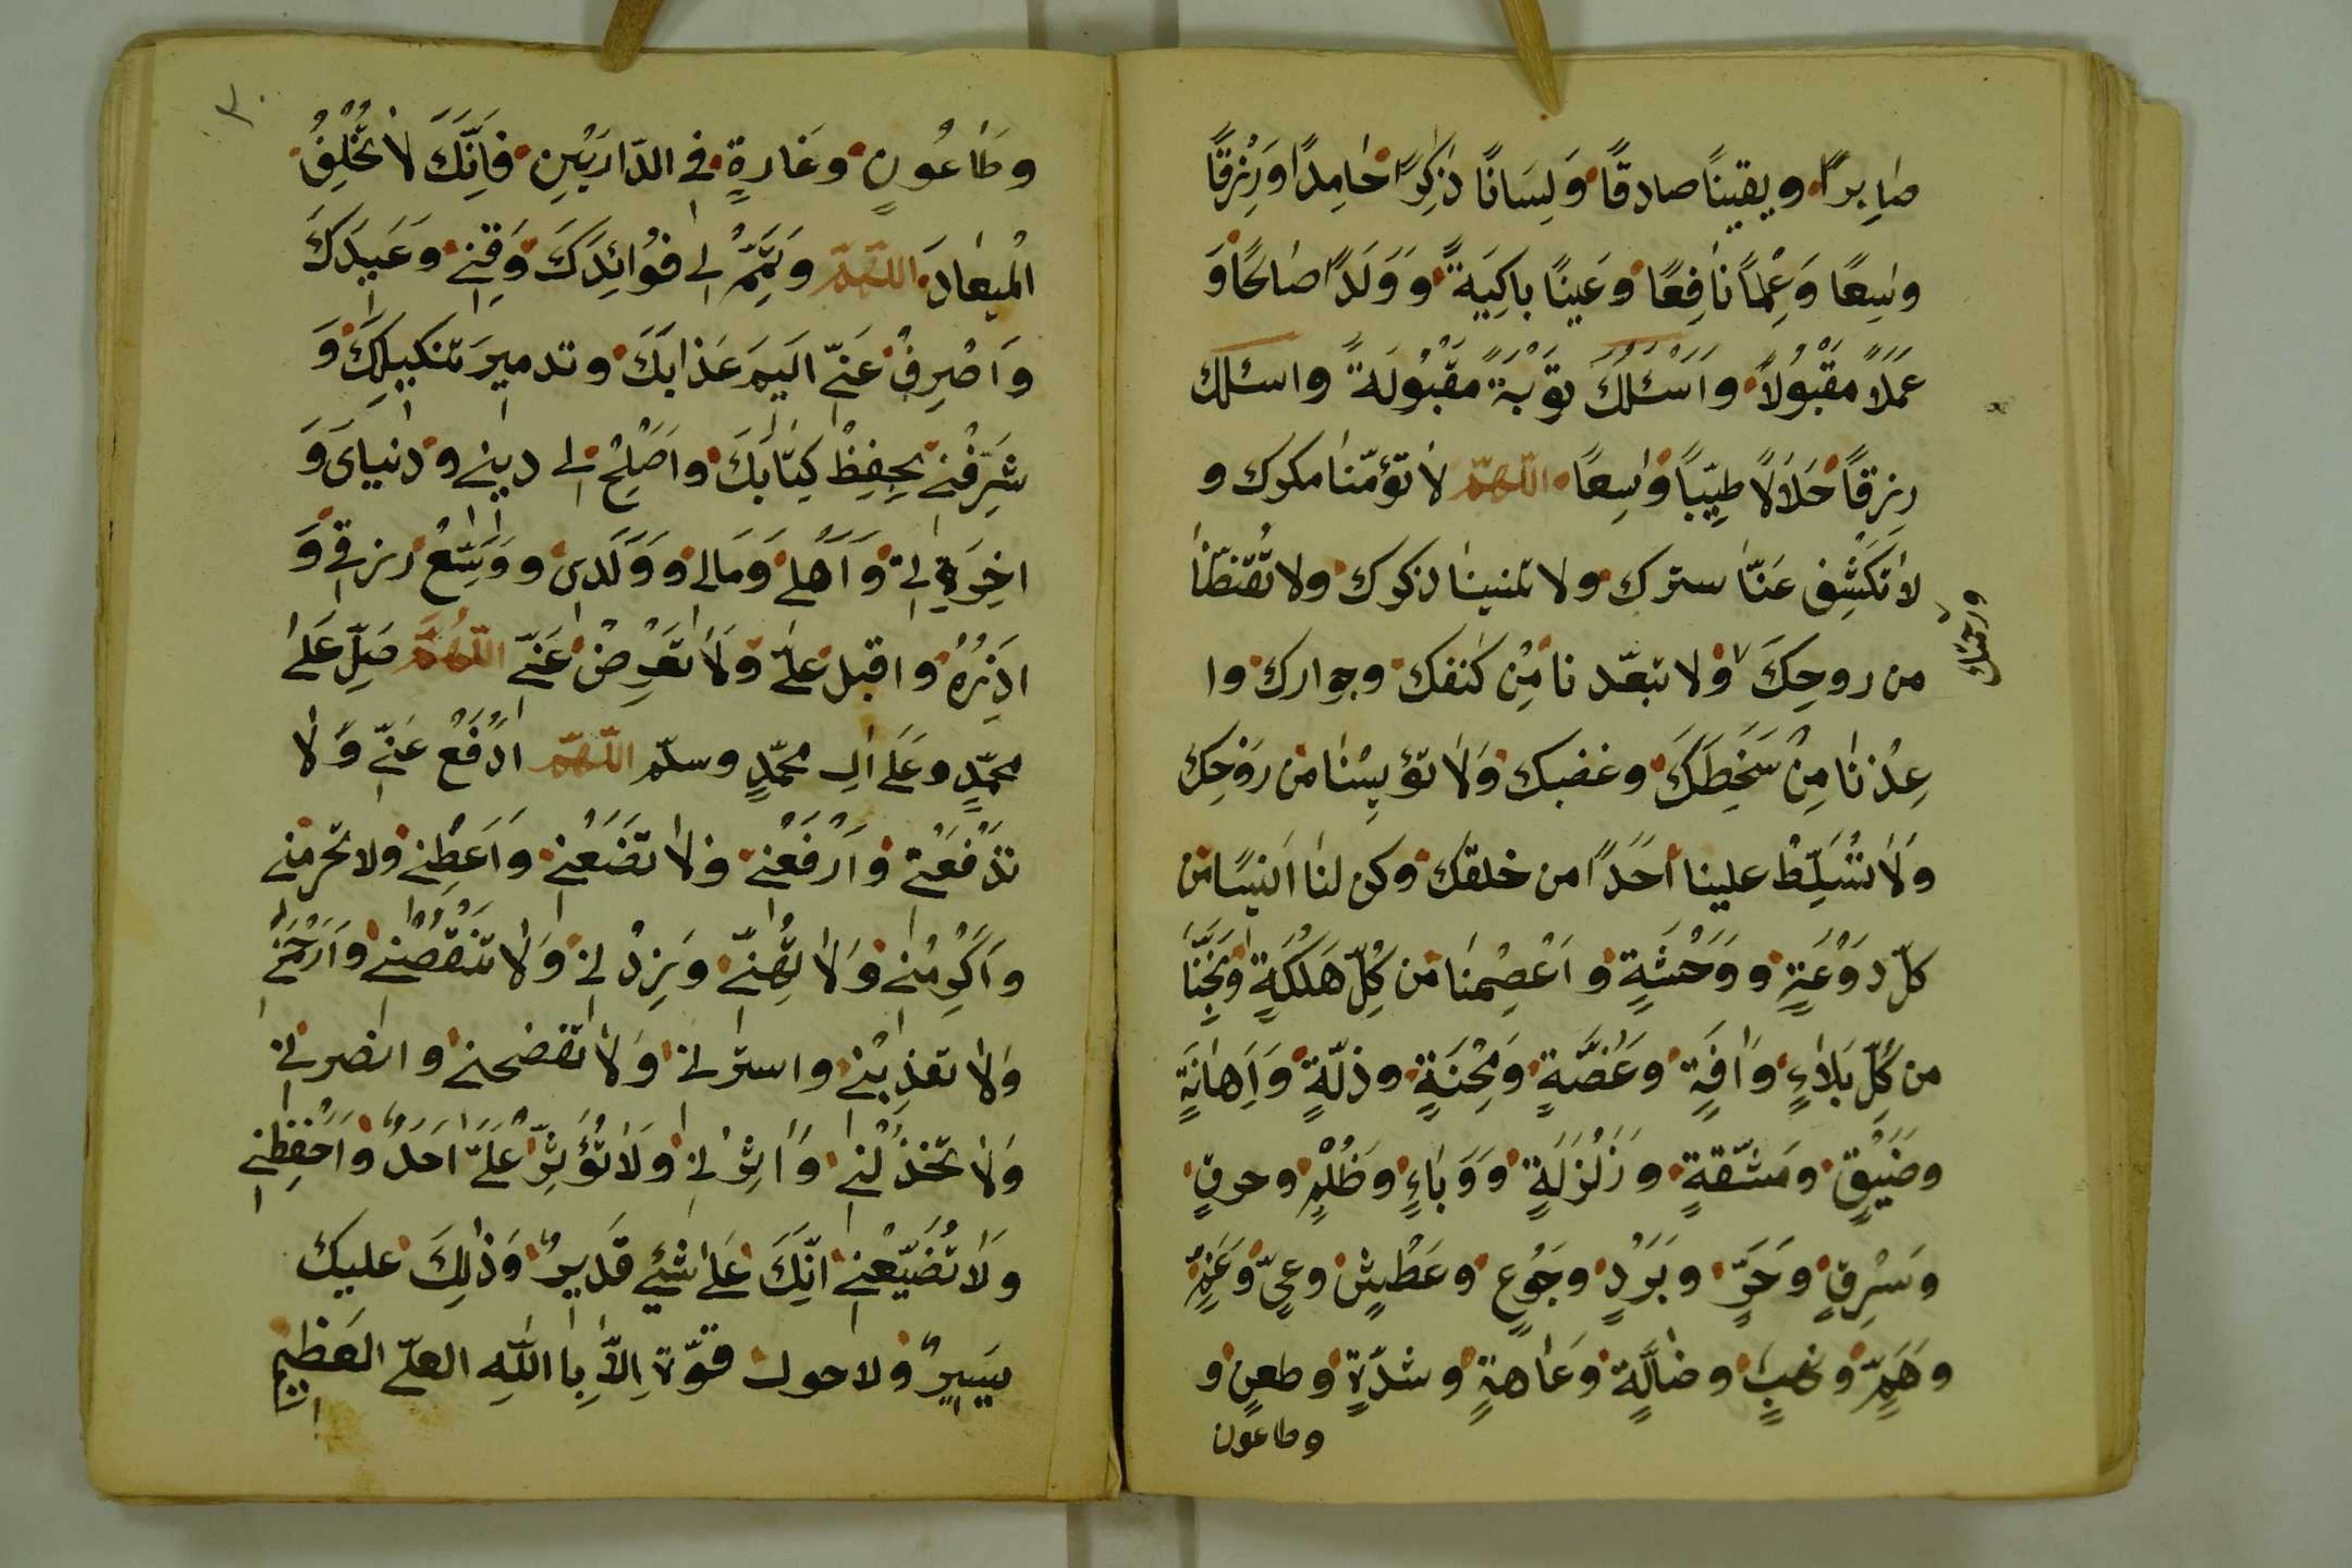 صٰابِرًا ويقينًا صادقًا وَلِسَانًا ذٰكِرًا حٰامِدًا وَرِزْقًا
وٰسِعًا وَعِلْمًا نٰافِعًا وَعَينًا باكِيَةً وَوَلَدًا صٰالحًا وَ
عَمَلًا مَقْبُولًا وَاَسْئَلُكَ تَوْبَةً مَقْبُولَةً واسئلك
رِزقًا حَلَالًا طيِّبًا وٰسِعًا اللّهمّ لٰا تؤمّنٰا مكرك و
لٰا تكَشِف عَنّٰا سترك ولا تنسينا ذكرك ولا تُقَنِّطنٰا
من روحِكَ ولا تبعّد نا مِنْ كنفك وجوارك وا
ورحمتك
عِذْنٰا مِنْ سَخَطِكَ وغضبك وَلٰا تؤيِسْنٰا من رَوْحِك
وَلَا تُسَلِّطْ علينا اَحَدًا من خلقك وكن لنٰا انيسًا من
كلّ رَوْعَةٍ ووَحْشَةٍ واَعْصِمْنٰا من كُلِّ هَلَكَةٍ وَنَجِّنَا
من كُلِّ بَلٰاءٍ وَاٰفَةٍ وغُصَّةٍ وَمِحْنَةٍ وذلّةٍ وَاِهَانَةٍ
وضَيْقٍ ومَشّقةٍ وزَلْزَلَةٍ وَوَبَاءٍ وظُلْمٍ وحرقٍ
وَسَرِقٍ وحَرٍّ وبَرْدٍ وجُوعٍ وعَطْشٍ وعىٍّ وَغَمٍّ
وهَمٍّ ونهبٍ وضٰالَّةٍ وعَاهةٍ وشدّةٍ وطعنٍ و
وطاعون
٣٠
وطٰاعُونٍ وغَارةٍ فِى الدّارَيْنِ فَاِنَّكَ لٰا تُخْلِفُ
الْمِيعٰادَ اللّهمّ وتَمِّمْ لى فوٰائِدَكَ وَقِنى وَعَيدَكَ
وَاصْرِفْ عَنّى اَليمَ عَذابكَ وتدميرَ تنكيلِكَ وَ
شَرِّفْنى بِحِفظْ كِتٰابكَ واَصْلِحْ لى دينى ودنياىَ وَ
اخِرَتى وَاَهْلى وَمَالى وَوَلَدى وَوَسِّعْ رِزقى وَ
اَدِرَّهُ واقبل علىَّ وَلٰا تُعْرِضْ عَنّى اللّهُمَّ صَلِّ عَلىٰ
محمّدٍ وعَلى اٰلِ محمّدٍ وسلّم اللّهمّ ادْفَعْ عَنّى وَلٰا
تَدْفَعْنى وارْفَعْنى ولٰا تضَعْنى وَاَعْطِنى ولا تحرمنى
واَكْرِمْنى وَلٰا تُهِنّى وَزِدْ لى وَلٰا تَنْقُصْنى وَارْحَمْنى
وَلٰا تعَذِبْنى واسترلى وَلٰا تفضحنى وانصرنى
وَلٰا تَخْذُلْنى وَاٰثِرْنى وَلَا تُؤْثِرْ عَلَىَّ اَحَدً وَاحْفَظْنى
وَلَا تُضَيّعْنى انَّكَ عَلى شَئٍ قَديرٌ وَذٰلِكَ عليك
يسَيرٌ ولا حول قُوّةَ اِلَّا بِا اللّٰهِ العلىّ العَظيم